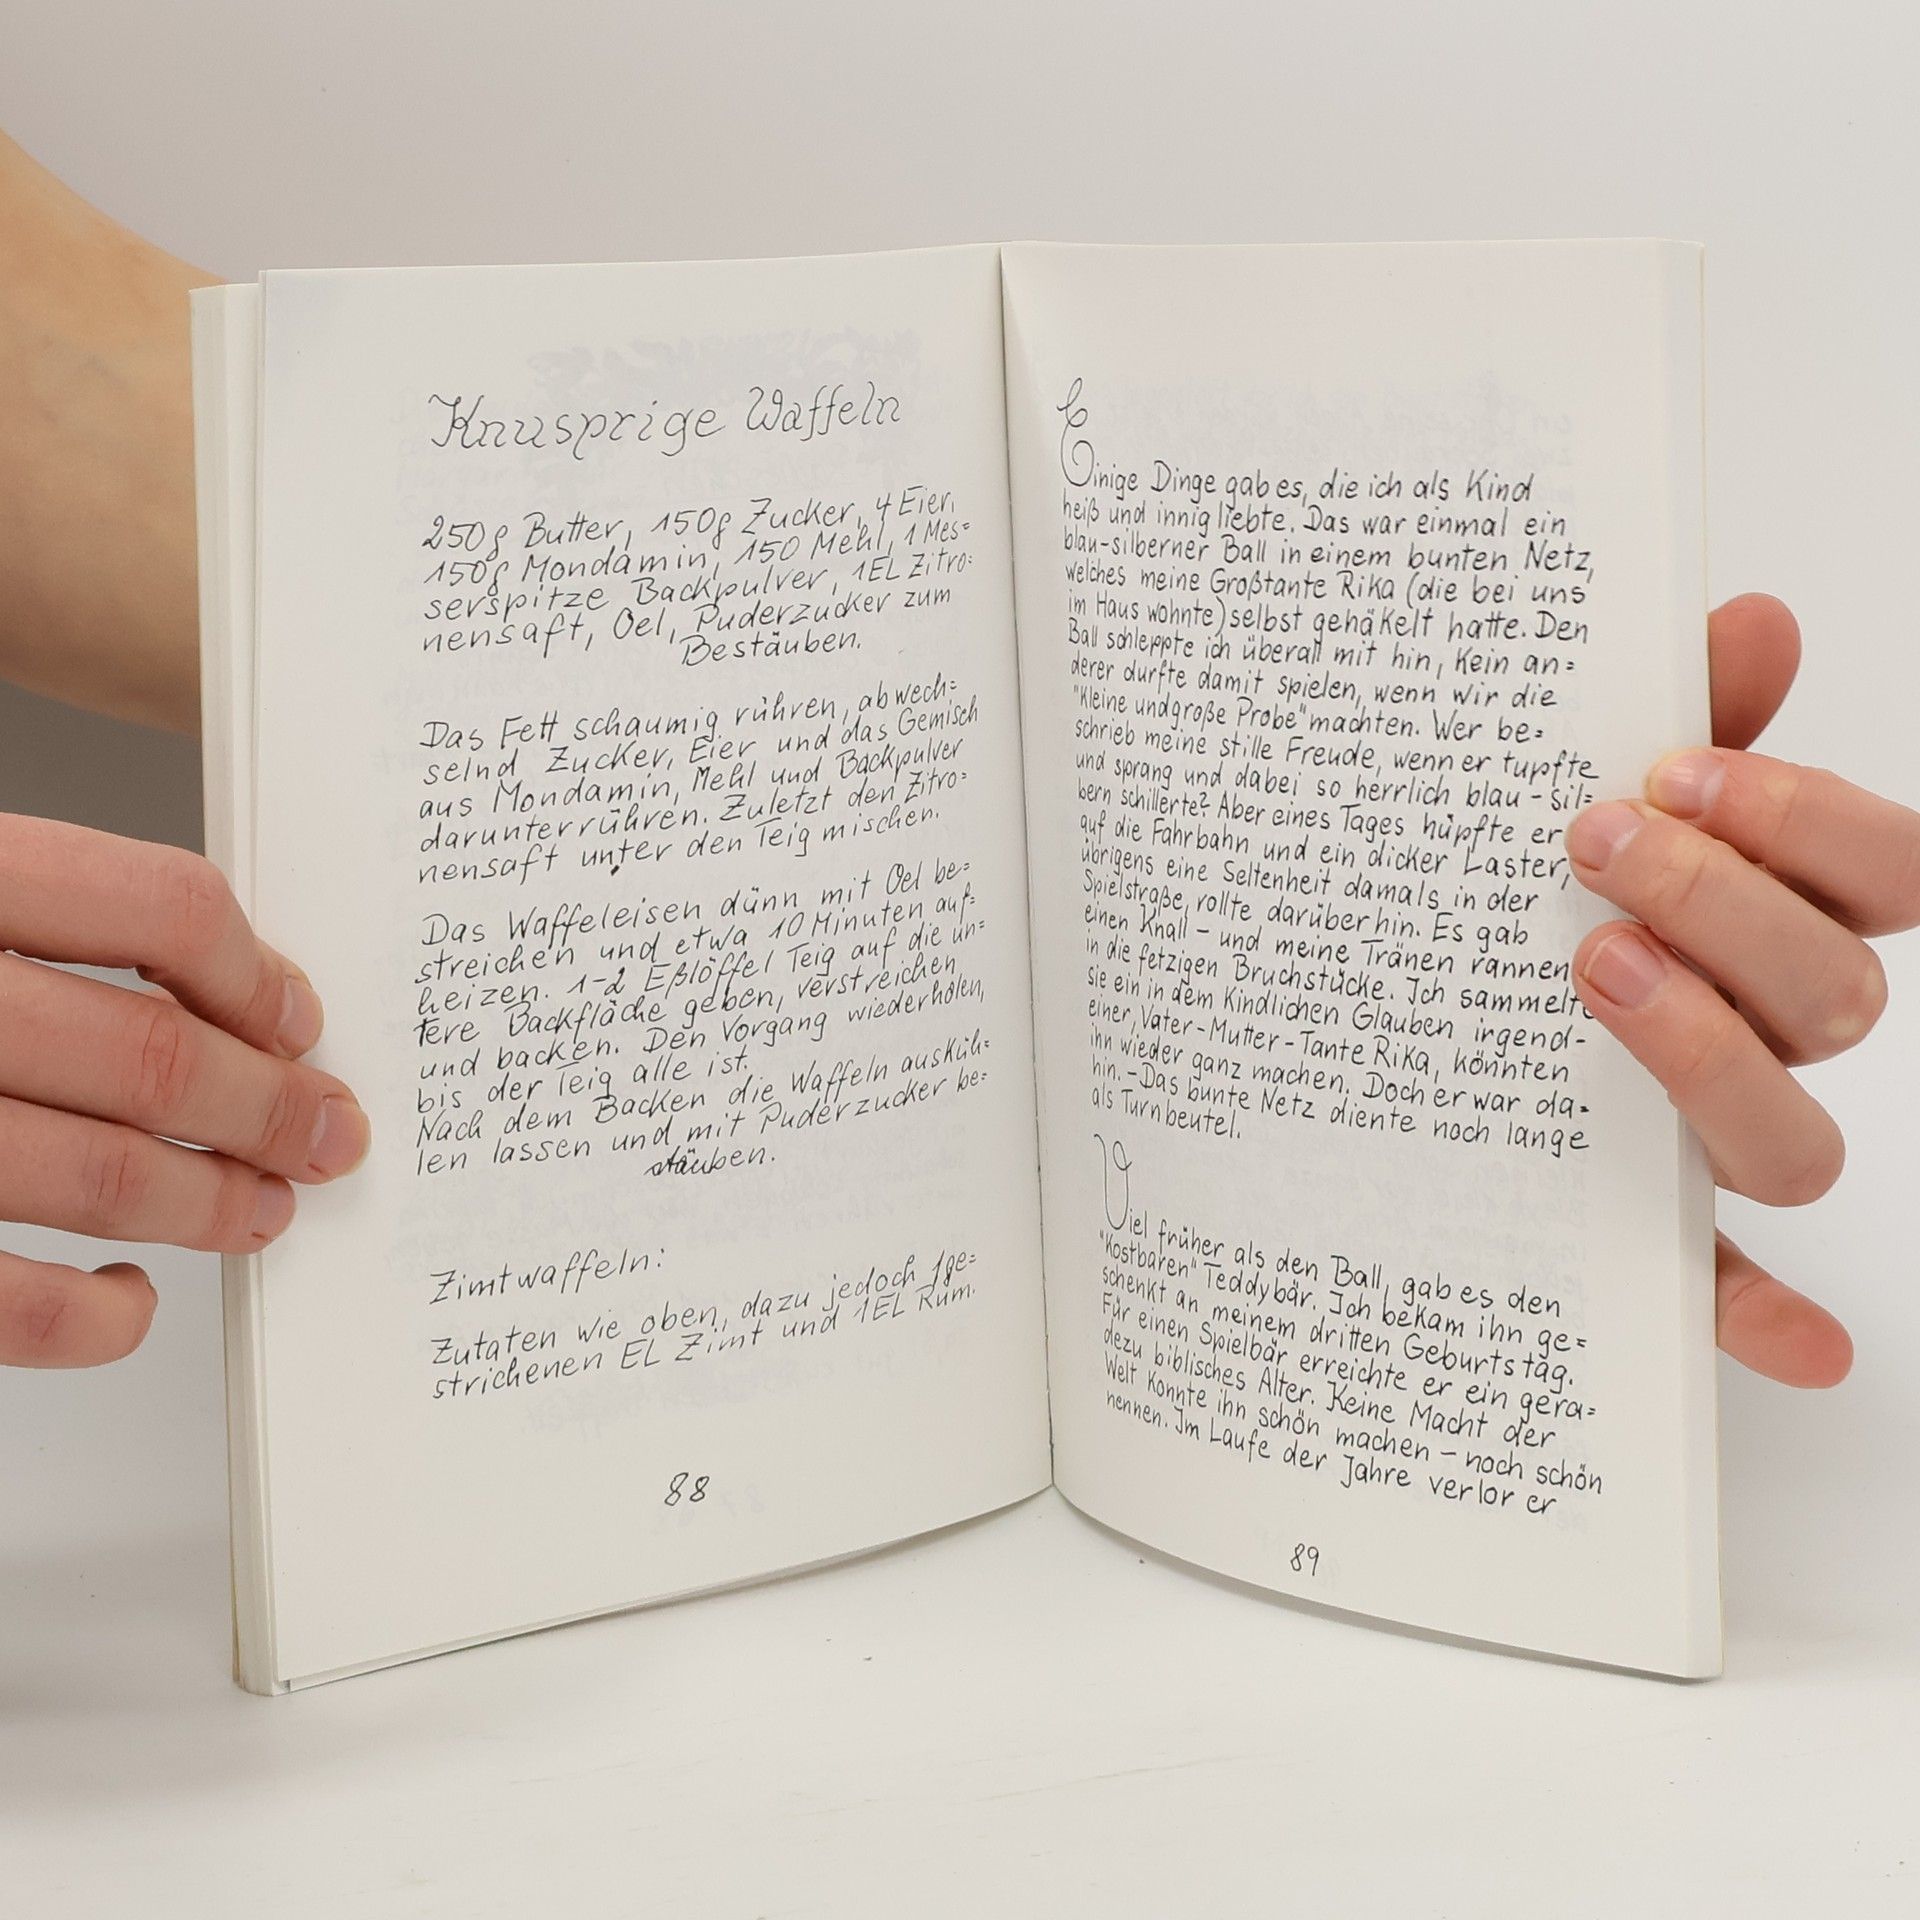 Knusprige Waffeln
250g Butter, 150g Zucker, 4 Eier,
150g Mondamin, 150 Mehl, 1 Mes=
serspitze Backpulver, 1EL Zitro=
nensaft, Oel, Puderzucker zum
Bestäuben.
Das Fett schaumig rühren, abwech=
selnd Zucker, Eier und das Gemisch
aus Mondamin, Mehl und Backpulver
darunterrühren. Zuletzt den Zitro=
nensaft unter den Teig mischen.
Das Waffeleisen dünn mit Oel be=
streichen und etwa 10 Minuten auf=
heizen. 1-2 Eßlöffel Teig auf die un=
tere Backfläche geben, verstreichen
und backen. Den Vorgang wiederholen,
bis der Teig alle ist.
Nach dem Backen die Waffeln ausküh=
len lassen und mit Puderzucker be=
stäuben.
Zimtwaffeln:
Zutaten wie oben, dazu jedoch 1ge=
strichenen EL Zimt und 1EL Rum.
88
Einige Dinge gab es, die ich als Kind
heiß und innig liebte. Das war einmal ein
blau-silberner Ball in einem bunten Netz,
welches meine Großtante Rika (die bei uns
im Haus wohnte) selbst gehäkelt hatte. Den
Ball schleppte ich überall mit hin, kein an=
derer durfte damit spielen, wenn wir die
"kleine und große Probe" machten. Wer be=
schrieb meine stille Freude, wenn er tupfte
und sprang und dabei so herrlich blau-sil=
bern schillerte? Aber eines Tages hüpfte er
auf die Fahrbahn und ein dicker Laster,
übrigens eine Seltenheit damals in der
Spielstraße, rollte darüber hin. Es gab
einen Knall - und meine Tränen rannen
in die fetzigen Bruchstücke. Ich sammelte
sie ein in dem kindlichen Glauben irgend-
einer, Vater-Mutter-Tante Rika, könnten
ihn wieder ganz machen. Doch er war da=
hin. - Das bunte Netz diente noch lange
als Turnbeutel.
Viel früher als den Ball, gab es den
"kostbaren" Teddybär. Ich bekam ihn ge=
schenkt an meinem dritten Geburtstag.
Für einen Spielbär erreichte er ein gera=
dezu biblisches Alter. Keine Macht der
Welt konnte ihn schön machen - noch schön
nennen. Im Laufe der Jahre verlor er
89